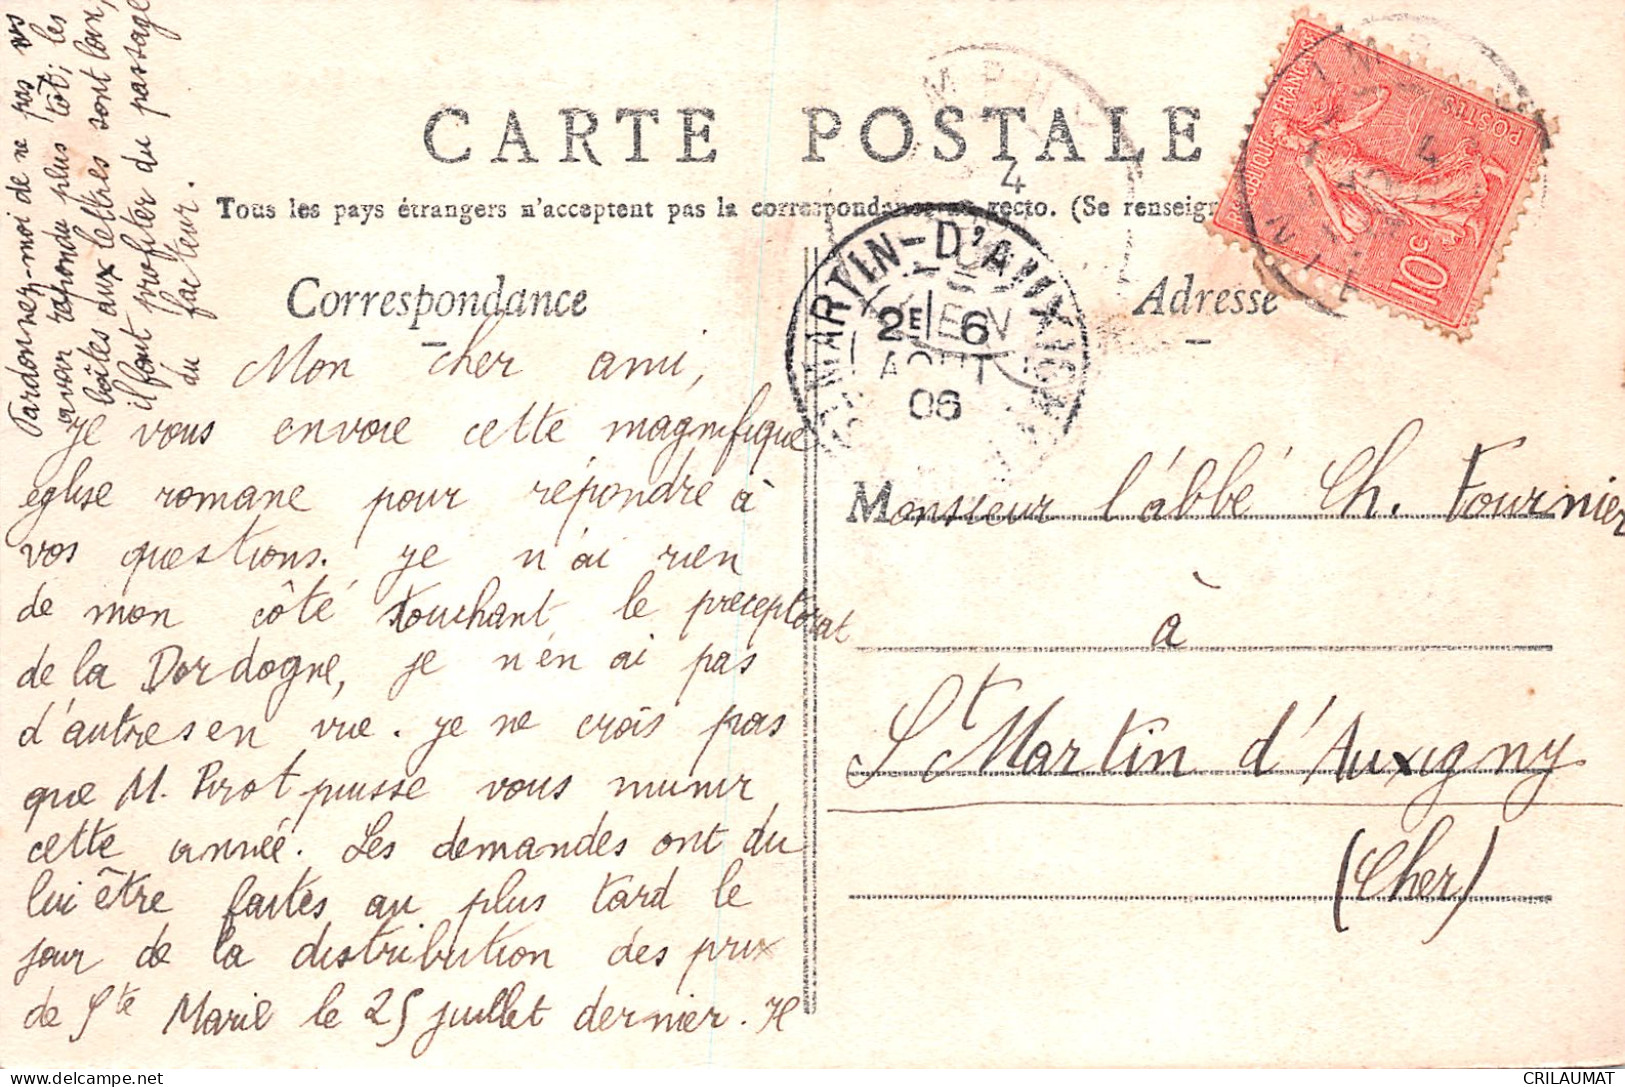 Pardonnez-moi de ne pas vous
avoir répondu plus tôt; les
boîtes aux lettres sont loin,
il faut profiter du passage
du facteur.
CARTE POSTALE
Tous les pays étrangers n'acceptent pas la correspondance au recto. (Se renseign
Correspondance
Adresse
RÉPUBLIQUE FRANÇAISE
POSTES
10c
4
4
MARTIN-D'AUXIG
2E 6
AOUT
06
Mon cher ami,
Je vous envoie cette magnifique
église romane pour répondre à
vos questions. Je n'ai rien
de mon côté touchant le preceptorat
de la Dordogne, je n'en ai pas
d'autres en vue. Je ne crois pas
que M. Pirot puisse vous munir
cette année. Les demandes ont du
lui être faites au plus tard le
jour de la distribution des prix
de Ste Marie le 25 juillet dernier. H
Monsieur l'abbé Ch. Fournier
à
St Martin d'Auxigny
(Cher)
CRILAUMAT